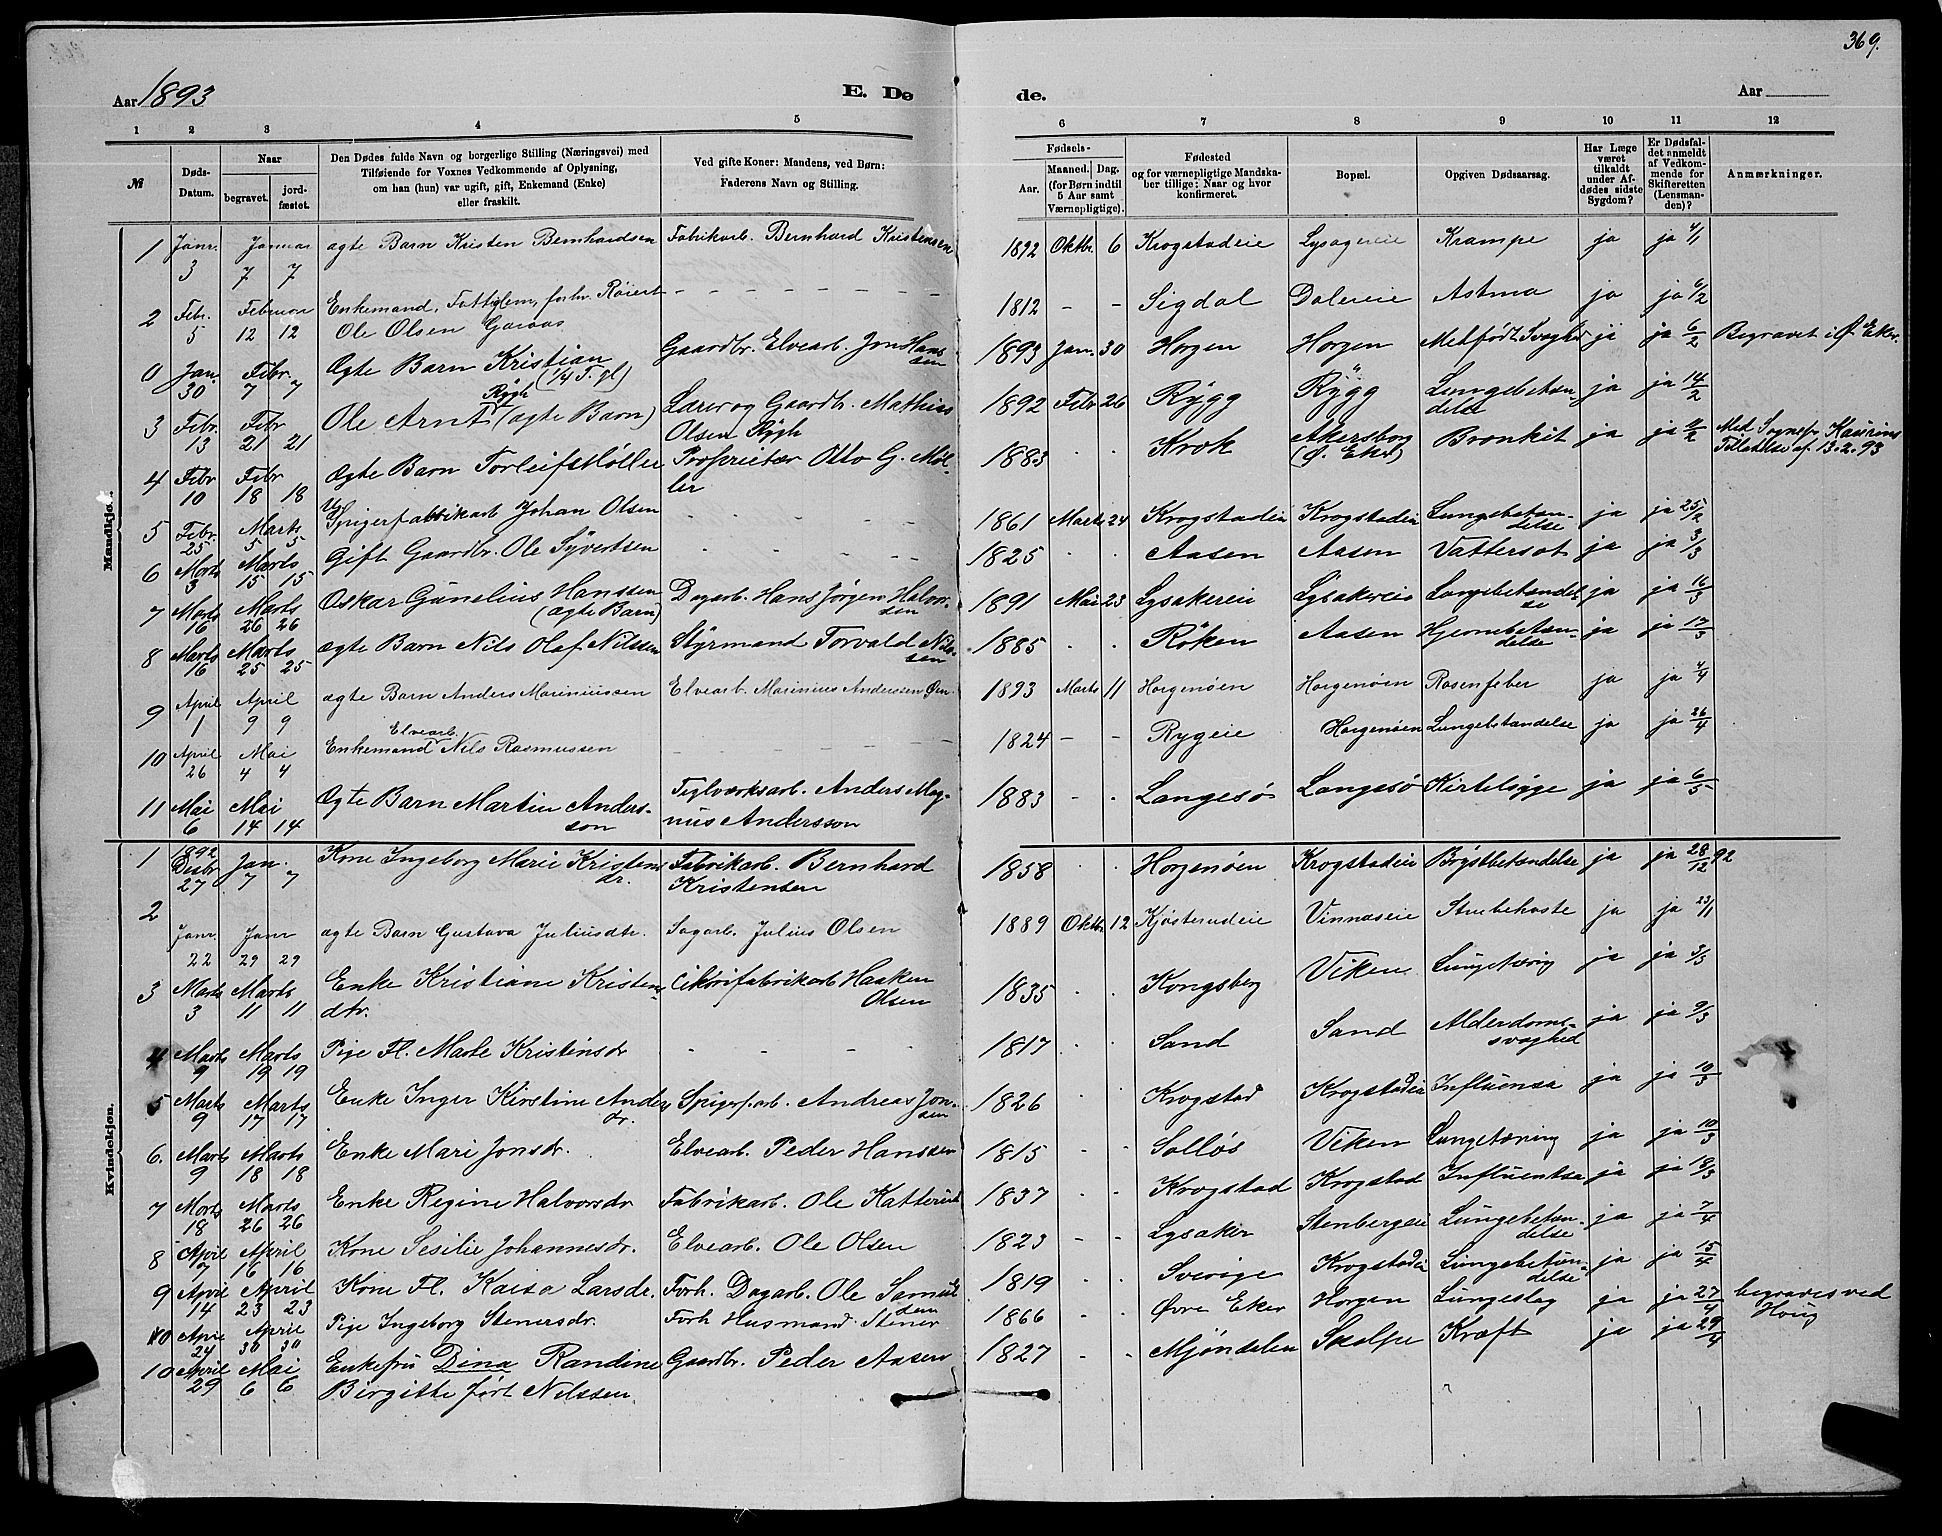 369.
Aar 1893
E. Dø
de.
Aar
1 2 3 4 5 6 7 8 9 10 11 12
№
Døds-Datum.
Naar
begravet.
jordfæstet.
Den Dødes fulde Navn og borgerlige Stilling (Næringsvei) med
Tilføiende for Voxnes Vedkommende af Oplysning,
om han (hun) var ugift, gift, Enkemand (Enke)
eller fraskilt.
Ved gifte Koner: Mandens, ved Børn:
Faderens Navn og Stilling.
Fødsels-
Aar.
Maaned. Dag.
(for Børn indtil
5 Aar samt
Værnepligtige).
Fødested
og for værnepligtige Mandska-
ber tillige: Naar og hvor
konfirmeret.
Bopæl.
Opgiven Dødsaarsag.
Har Læge
været
tilkaldt
under Af-
dødes sidste
Sygdom?
Er Dødsfal-
det anmeldt
af Vedkom-
mende for
Skifteretten
(Lensman-
den)?
Anmærkninger.
Mandkjøn.
1 Janr. 3 Januar 7 7 ægte Barn Kristen Bernhardsen Fabrikarb. Bernhard Kristensen 1892 Oktbr. 6 Krogstadeie Lysagereie Krampe ja ja 4/1
2 Febr. 5 Februar 12 12 Enkemand, Fattiglem, forhv. Røiert - - - 1812 - - Sigdal Dalereie Astma ja ja 6/2
Ole Olsen Garaas
0 Jan. 30 Febr. 7 7 Ægte Barn Kristian (1/4 T. gl) Gaardbr. Elvearb. Jons Hanssen 1893 Jan. 30 Horgen Horgen Medfødt Svaghed ja ja 6/2 Begravet i Ø. Eker
3 Febr. 13 Febr 21 21 Ole Arnt Rygh (ægte Barn) Lærer og Gaardbr. Mathias 1892 Febr 26 Rygg Rygg Lungebetændelse ja ja 14/2
Olsen Rygh
4 Febr 10 Febr 18 18 Ægte Barn Torleif Møller Proprietær Otto G. Møller 1883 Krok Akersborg (Ø. Eker) Bronkit ja ja 11/2 Med Sognepr. Kaurins
Tilladelse af 13.2.93
5 Febr. 25 Marts 5 5 Ug Spigerfabrikarb Johan Olsen 1861 Marts 24 Krogstadeie Krogstadeie Lungebetændelse ja ja 25/2
6 Marts 3 Marts 15 15 Gift Gaardbr. Ole Syvertsen 1825 Aasen Aasen Vattersot ja ja 3/3
7 Marts 16 Marts 26 26 Oskar Gunelius Hanssen (ægte Barn) Dagarb. Hans Jørgen Halvorsen 1891 Mai 23 Lysakereie Lysakereie Lungebetændelse ja ja 16/3
8 Marts 16 Marts 25 25 ægte Barn Nils Olaf Nilssen Styrmand Torvald Nilssen 1885 Røken Aasen Hjernebetændelse ja ja 17/3
9 April 1 April 9 9 ægte Barn Anders Mariniussen Elvearb. Marinius Andersen Øen 1893 Marts 11 Horgenøen Horgenøen Rosenfeber ja ja 4/4
10 April 26 Mai 4 4 Enkemand Elvearb. Nils Rasmussen - - - 1824 - - Rygeie Horgenøen Lungebetændelse ja ja 26/4
11 Mai 6 Mai 14 14 Ægte Barn Martin Andersson Teglværksarb. Anders Mag-
nus Andersson 1883 - - Langesø Langesø Kirtelsyge ja ja 6/5
Kvindekjøn.
1 1892 Desbr 27 Jan. 7 7 Kone Ingeborg Marie Kristensdr. Fabrikarb. Bernhard
Kristensen 1858 Horgenøen Krogstadeie Brystbetændelse ja ja 28/12 92
2 Janr. 22 Janr 29 29 ægte Barn Gustava Juliusdtr. Sagarb. Julius Olsen 1889 Oktbr. 12 Kjøsterudeie Vinnæseie Strubehoste ja ja 23/1
3 Marts 3 Marts 11 11 Enke Kristiane Kristens-
dtr. Cikorifabrikarb Haaken Olsen 1835 Kongsberg Viken Lungetæring ja ja 3/3
4 Marts 9 Marts 19 19 Pige Fl. Marte Kristinsdr - - - - 1817 Sand Sand Alderdomssvaghed ja ja 9/3
5 Marts 9 Marts 17 17 Enke Inger Kirstine Andersdr. Spigerf.arb. Andreas Jonsen 1826 Krogstad Krogstadeie Influensa ja ja 10/3
6. Marts 9 Marts 18 18 Enke Mari Jonsdr. Elvearb. Peder Hanssen 1815 Solløs Viken Lungetæring ja ja 10/3
7 Marts 18 Marts 26 26 Enke Regine Halvorsdr Fabrikarb. Ole Katterud 1837 Krogstad Krogstad Influentsa ja ja 19/3
8 April 7 April 16 16 Kone Sesilie Johannesdr. Elvearb. Ole Olsen 1823 - - Lysaker Stenbergeie Lungebetændelse ja ja 7/4
9 April 14 April 23 23 Kone Fl. Kaisa Larsdr. Forh. Dagarb. Ole Samuel 1819 Sverige Krogstadeie Lungebetændelse ja ja 15/4
10 April 24 April 30 30 Pige Ingeborg Stenersdr. Forh Husmand Stener 1866 Øvre Eker Horgen Lungeslag ja ja 27/4 begraves ved
Houg
10 April 29 Mai 6 6 Enkefru Dina Randine Gaardbr. Peder Aasen 1827 Mjøndalen Skalpe Kræft ja ja 29/4
Birgitte født Nilssen